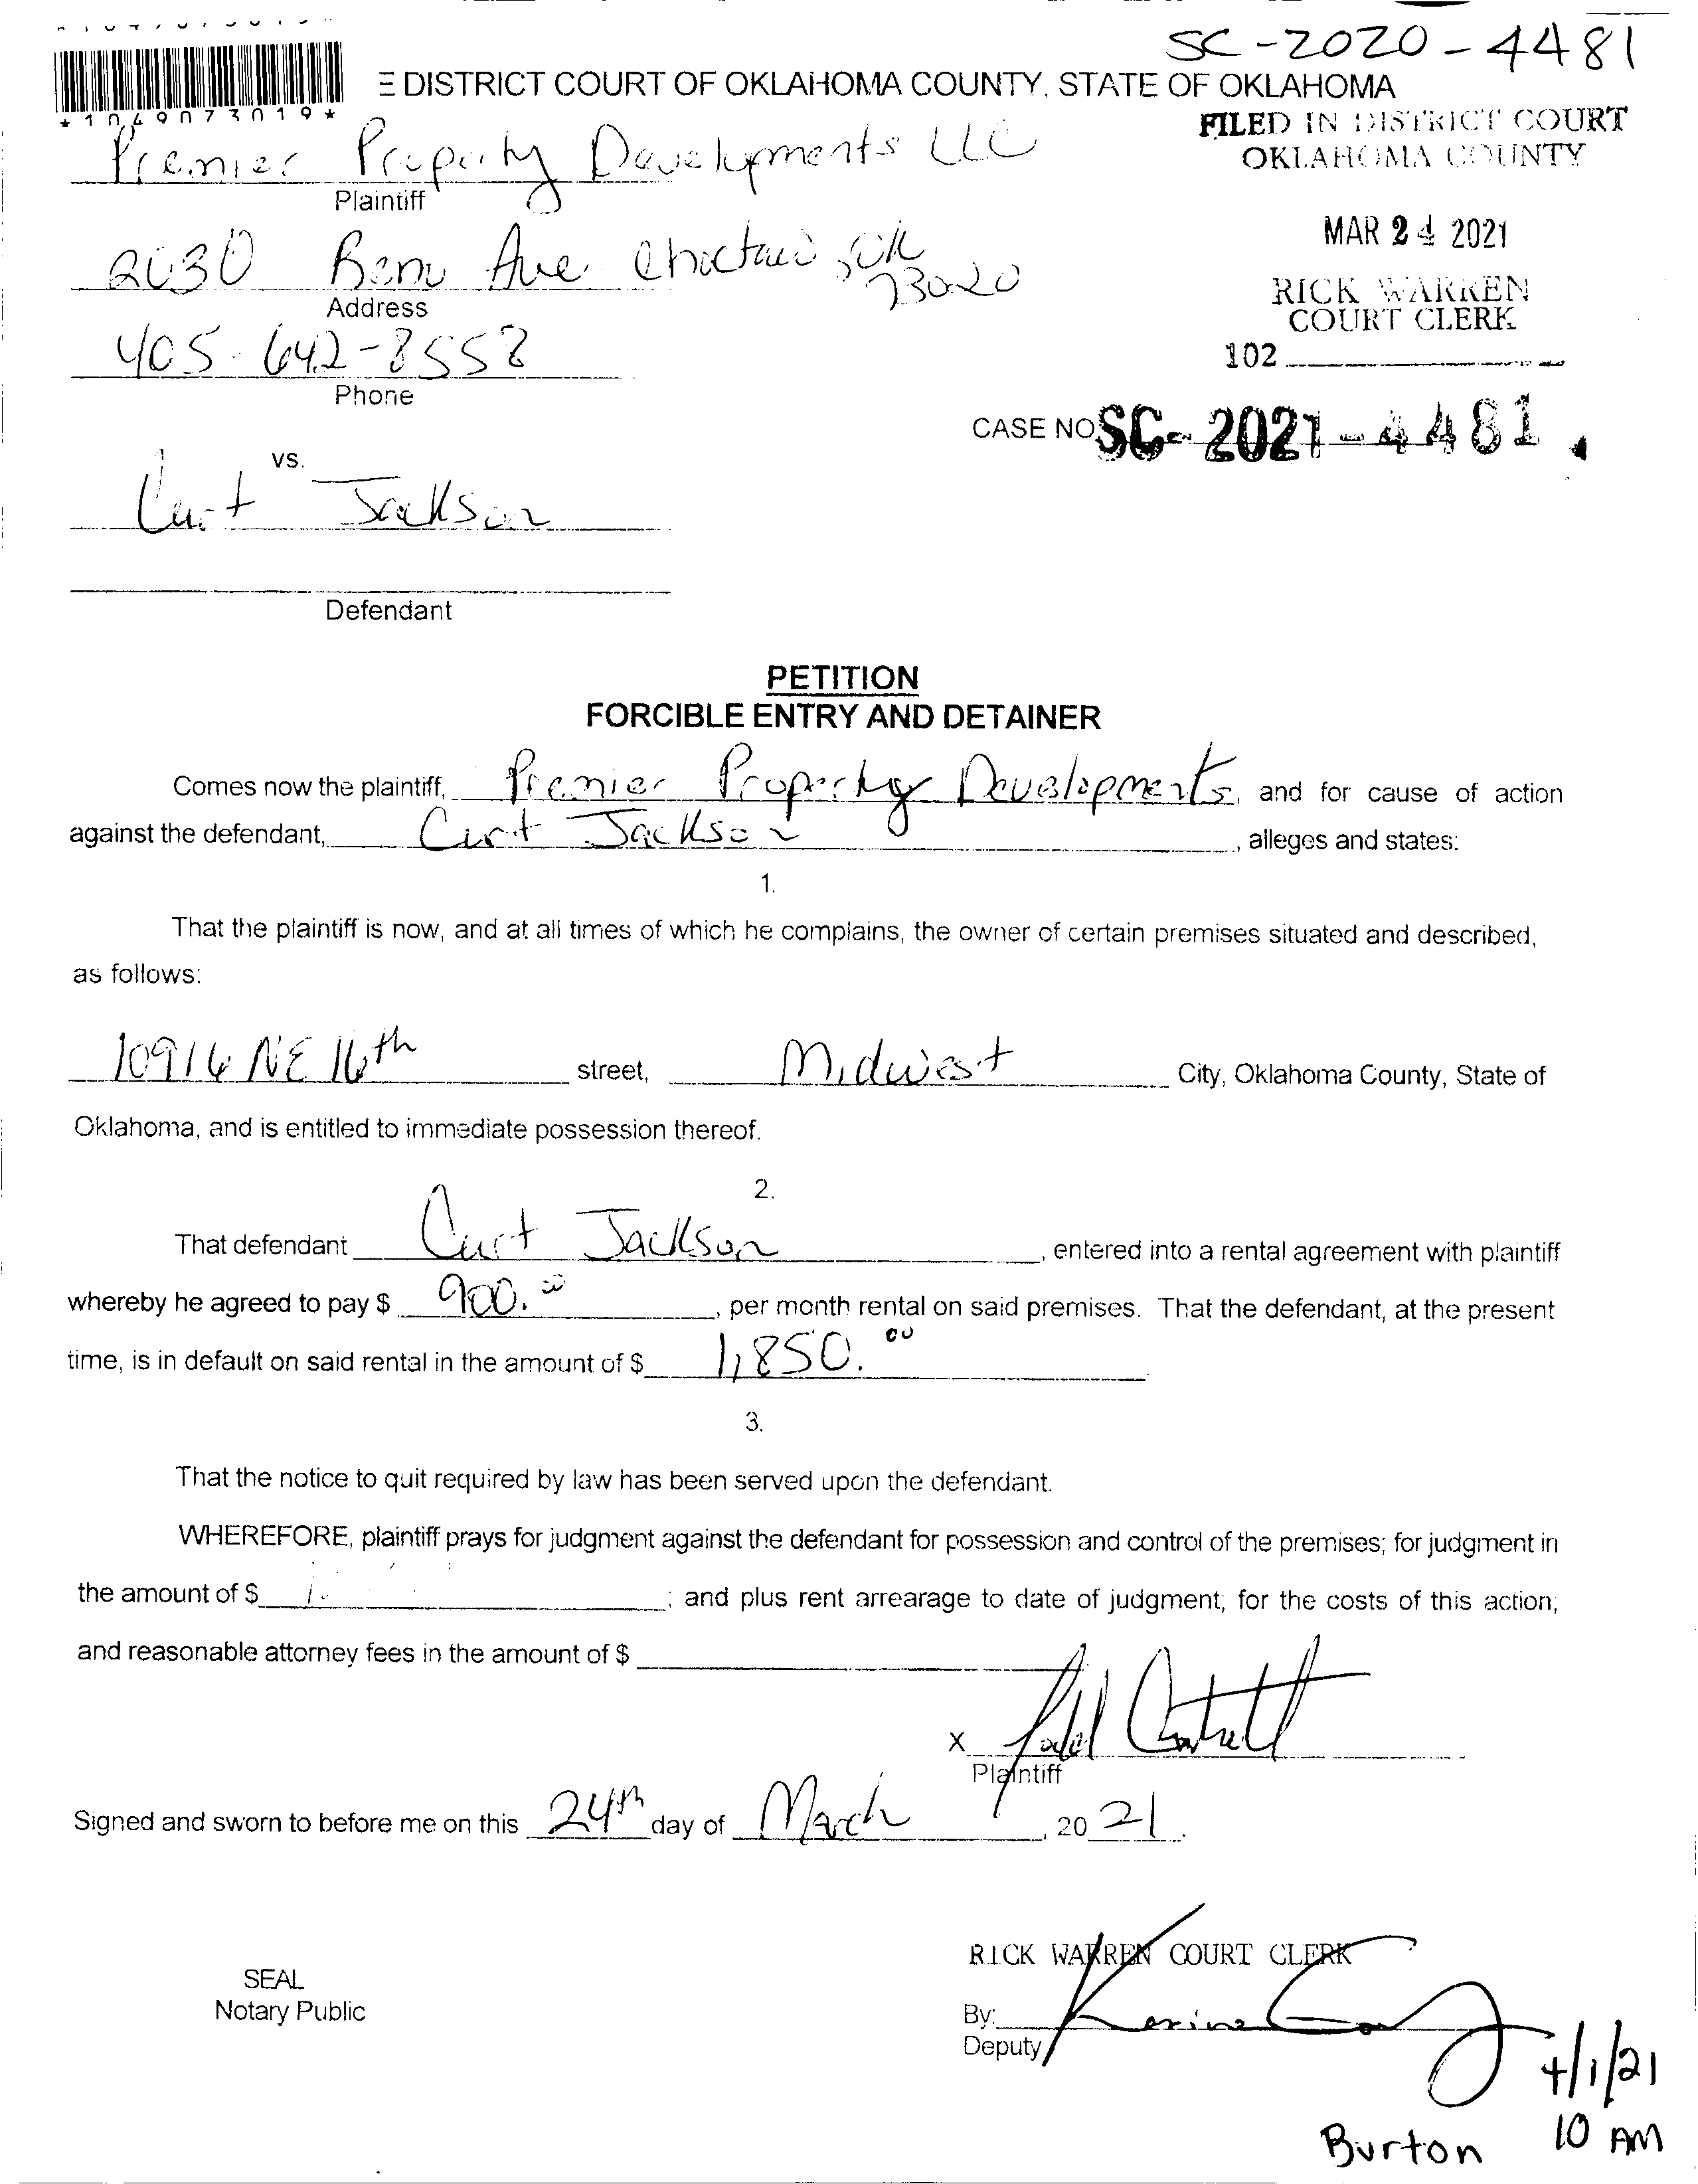 SC-2020-4481
*1049073019*
E DISTRICT COURT OF OKLAHOMA COUNTY, STATE OF OKLAHOMA
FILED IN DISTRICT COURT
OKLAHOMA COUNTY
Premier Property Developments LLC
Plaintiff
MAR 24 2021
2030 Ave Choctaw, OK
73020
Address
RICK WARREN
COURT CLERK
405-642-8558
102
Phone
CASE NO SC-2021-4481
vs.
Curt Jackson
Defendant
PETITION
FORCIBLE ENTRY AND DETAINER
Comes now the plaintiff, Premier Property Developments, and for cause of action
against the defendant, Curt Jackson, alleges and states:
1.
That the plaintiff is now, and at all times of which he complains, the owner of certain premises situated and described,
as follows:
10916 NE 16th street, Midwest City, Oklahoma County, State of
Oklahoma, and is entitled to immediate possession thereof.
2.
That defendant Curt Jackson, entered into a rental agreement with plaintiff
whereby he agreed to pay $ 900.00, per month rental on said premises. That the defendant, at the present
time, is in default on said rental in the amount of $ 1,850.00
3.
That the notice to quit required by law has been served upon the defendant.
WHEREFORE, plaintiff prays for judgment against the defendant for possession and control of the premises; for judgment in
the amount of $ ; and plus rent arrearage to date of judgment; for the costs of this action;
and reasonable attorney fees in the amount of $
X
Plaintiff
Signed and sworn to before me on this 24th day of March, 2021.
RICK WARREN COURT CLERK
SEAL
Notary Public
By:
Deputy
4/1/21
10 AM
Burton